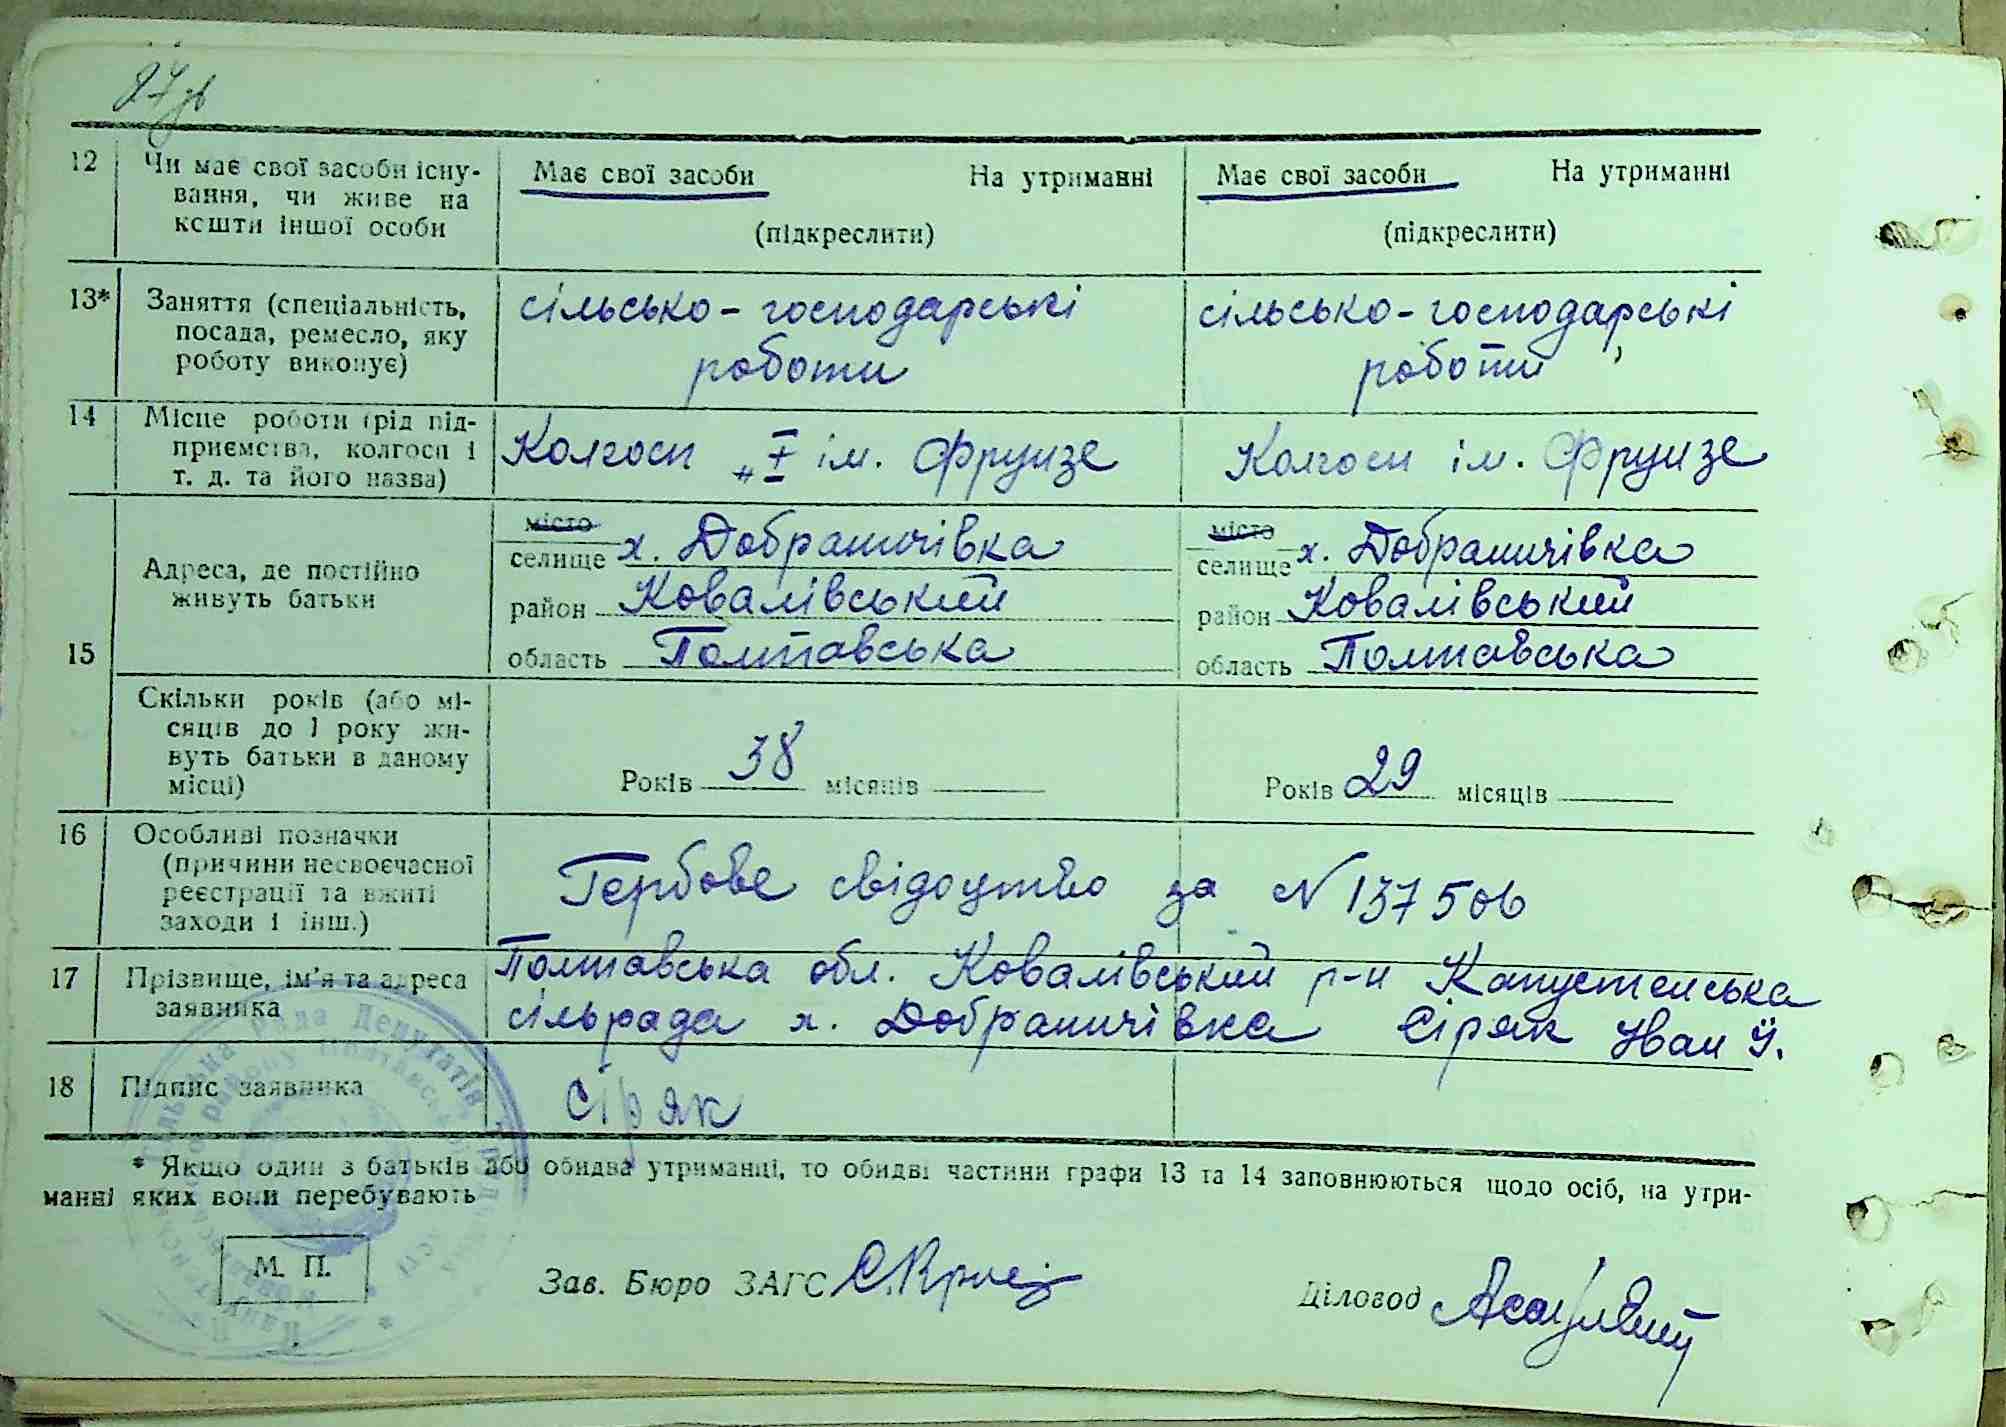 12 Чи має свої засоби існу-
вання, чи живе на
кошти іншої особи
Має свої засоби На утриманні
(підкреслити)
Має свої засоби На утриманні
(підкреслити)
13* Заняття (спеціальність,
посада, ремесло, яку
роботу виконує)
сільсько-господарські
роботи
сільсько-господарські
роботи
14 Місце роботи (рід під-
приємства, колгосп і
т. д. та його назва)
Колгосп ім. Фрунзе
Колгосп ім. Фрунзе
15 Адреса, де постійно
живуть батьки
місто
селище х. Добраничівка
район Ковалівський
область Полтавська
місто
селище х. Добраничівка
район Ковалівський
область Полтавська
Скільки років (або мі-
сяців до 1 року жи-
вуть батьки в даному
місці)
Років 38 місяців
Років 29 місяців
16 Особливі позначки
(причини несвоєчасної
реєстрації та вжиті
заходи і інш.)
Гербове свідоцтво за N 137506
17 Прізвище, ім'я та адреса
заявника
Полтавська обл. Ковалівський р-н Капустенська
сільрада х. Добраничівка Сіряк Іван Й.
18 Підпис заявника
Сіряк
* Якщо один з батьків або обидва утриманці, то обидві частини графи 13 та 14 заповнюються щодо осіб, на утри-
манні яких вони перебувають
М. П.
Зав. Бюро ЗАГС
Діловод